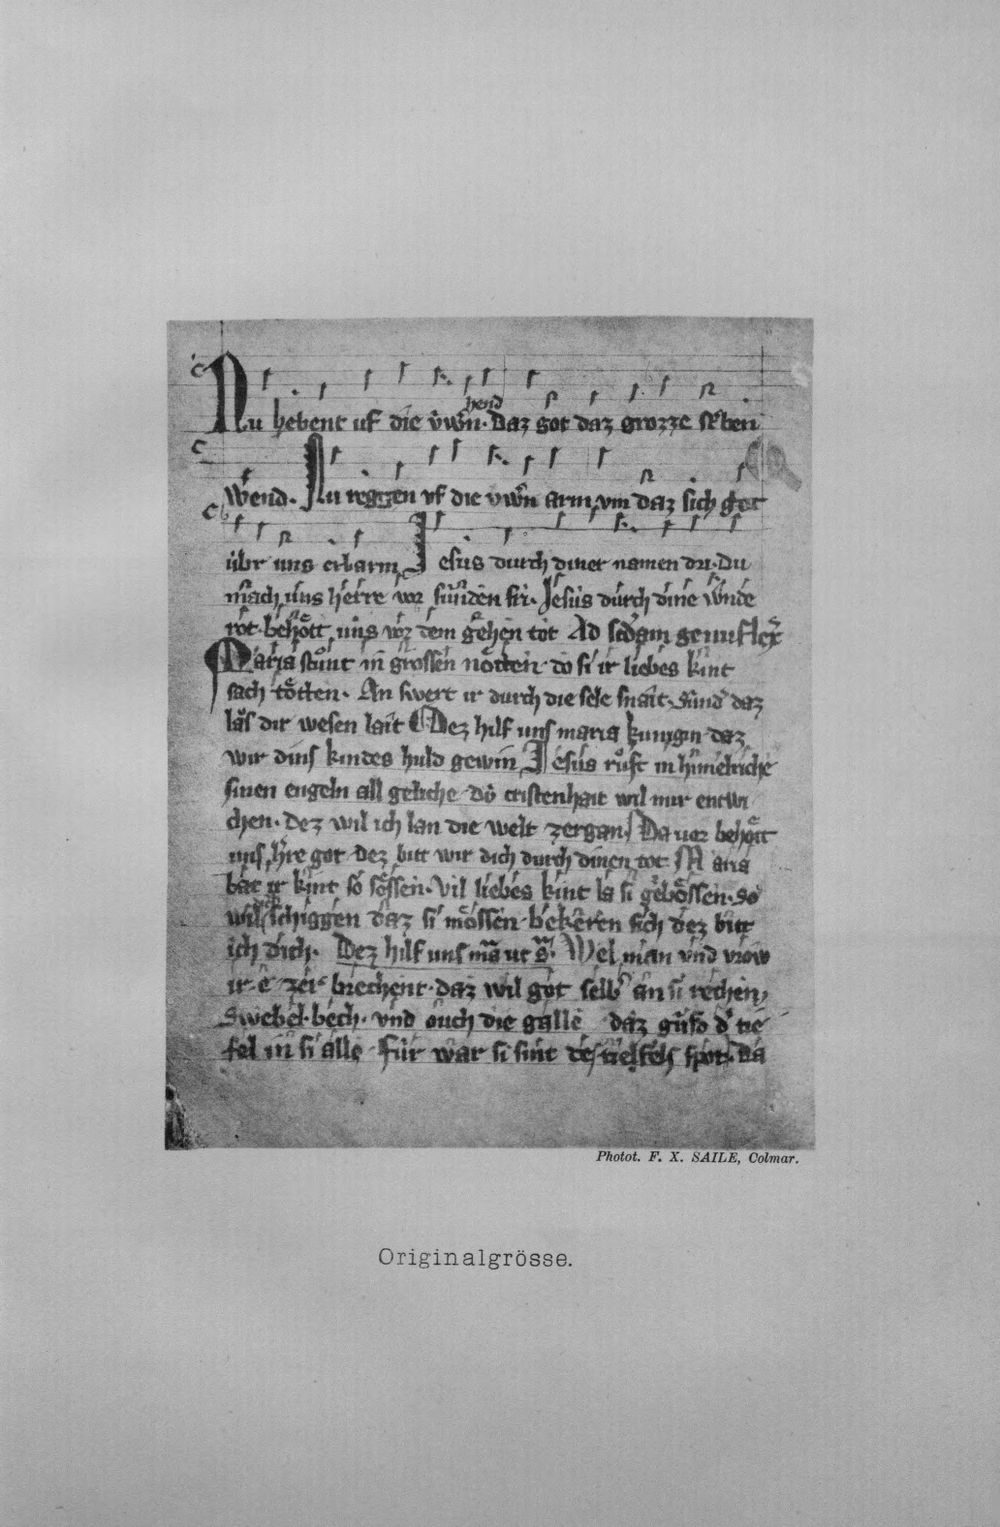 hend
Nu hebent uf die v́wn· Daz got daz grozze st̾ben
wend· Nu reggen uf die uwn arm, vm daz sich got
úbr uns erbarm, Jesus durch diner namen dri· Du
mach úns herre vor súnden fri· Jesus durch dine wnde
rot· behoͤtt úns vor dem gehen tot Ad scd̄am genuflex̄
Maria stuͦnt in grossen noͤtten do si ir liebes kint
sach toͤtten· An swert ir durch die sele snait· Sund̾ daz
las dir wesen lait Dez hilf uns maria kunigin daz
wir dins kindes huld gewin, Jesus ruͦft in himelriche
sinen engeln all geliche· Dú cristenhait wil mir entwi
chen· Dez wil ich lan die welt zergan, Da uor behoͤtt
uns, h̾re got· Dez bitt wir dich durch dinen tot· Maria
bat ir kint so soͤssen· Vil liebes kint la si geboͤssen· So
wil schiggen daz si moͤssen· bekeren sich dez bitt
ich dich· Dez hilf uns ma ut s· Wel man und vrow
ir e zer brechent· daz wil got selb̾ an si rechen,
Swebel· bech· und ouch die galle daz gúso d̾ tie
fel in si alle· Fúr war si sint des tiefels spot· Da
Photot. F. X. SAILE, Colmar.
Originalgrösse.